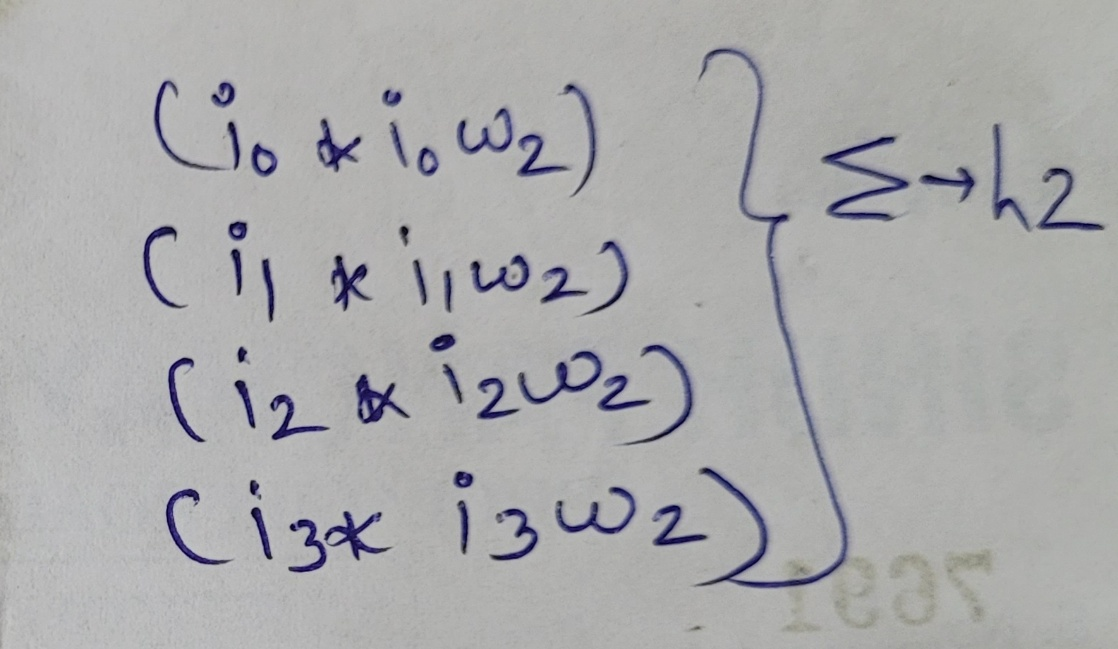 (i₀ * i₀ w₂)
(i₁ * i₁ w₂)
(i₂ * i₂ w₂)
(i₃ * i₃ w₂)
} Σ → h2